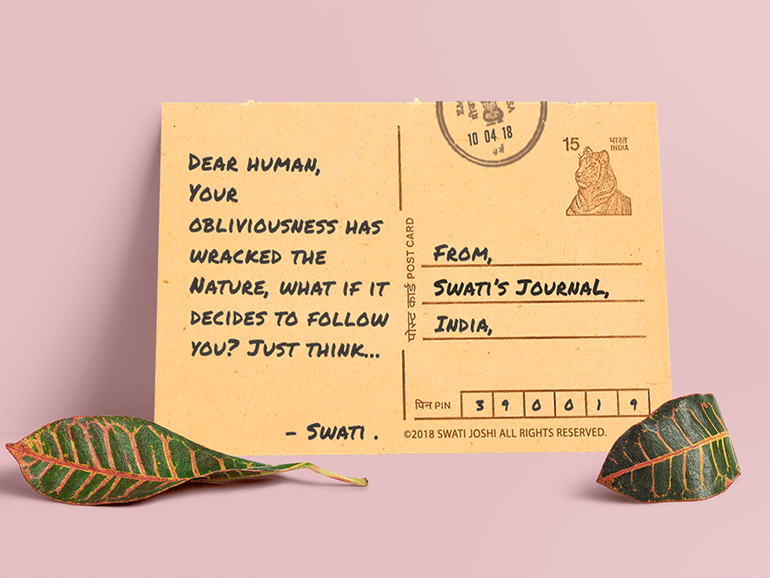 DEAR HUMAN,
YOUR
OBLIVIOUSNESS HAS
WRACKED THE
NATURE, WHAT IF IT
DECIDES TO FOLLOW
YOU? JUST THINK...
- SWATI .
पोस्ट कार्ड POST CARD
10 04 18
15
भारत
INDIA
FROM,
SWATI'S JOURNAL,
INDIA,
पिन PIN 3 9 0 0 1 9
©2018 SWATI JOSHI ALL RIGHTS RESERVED.